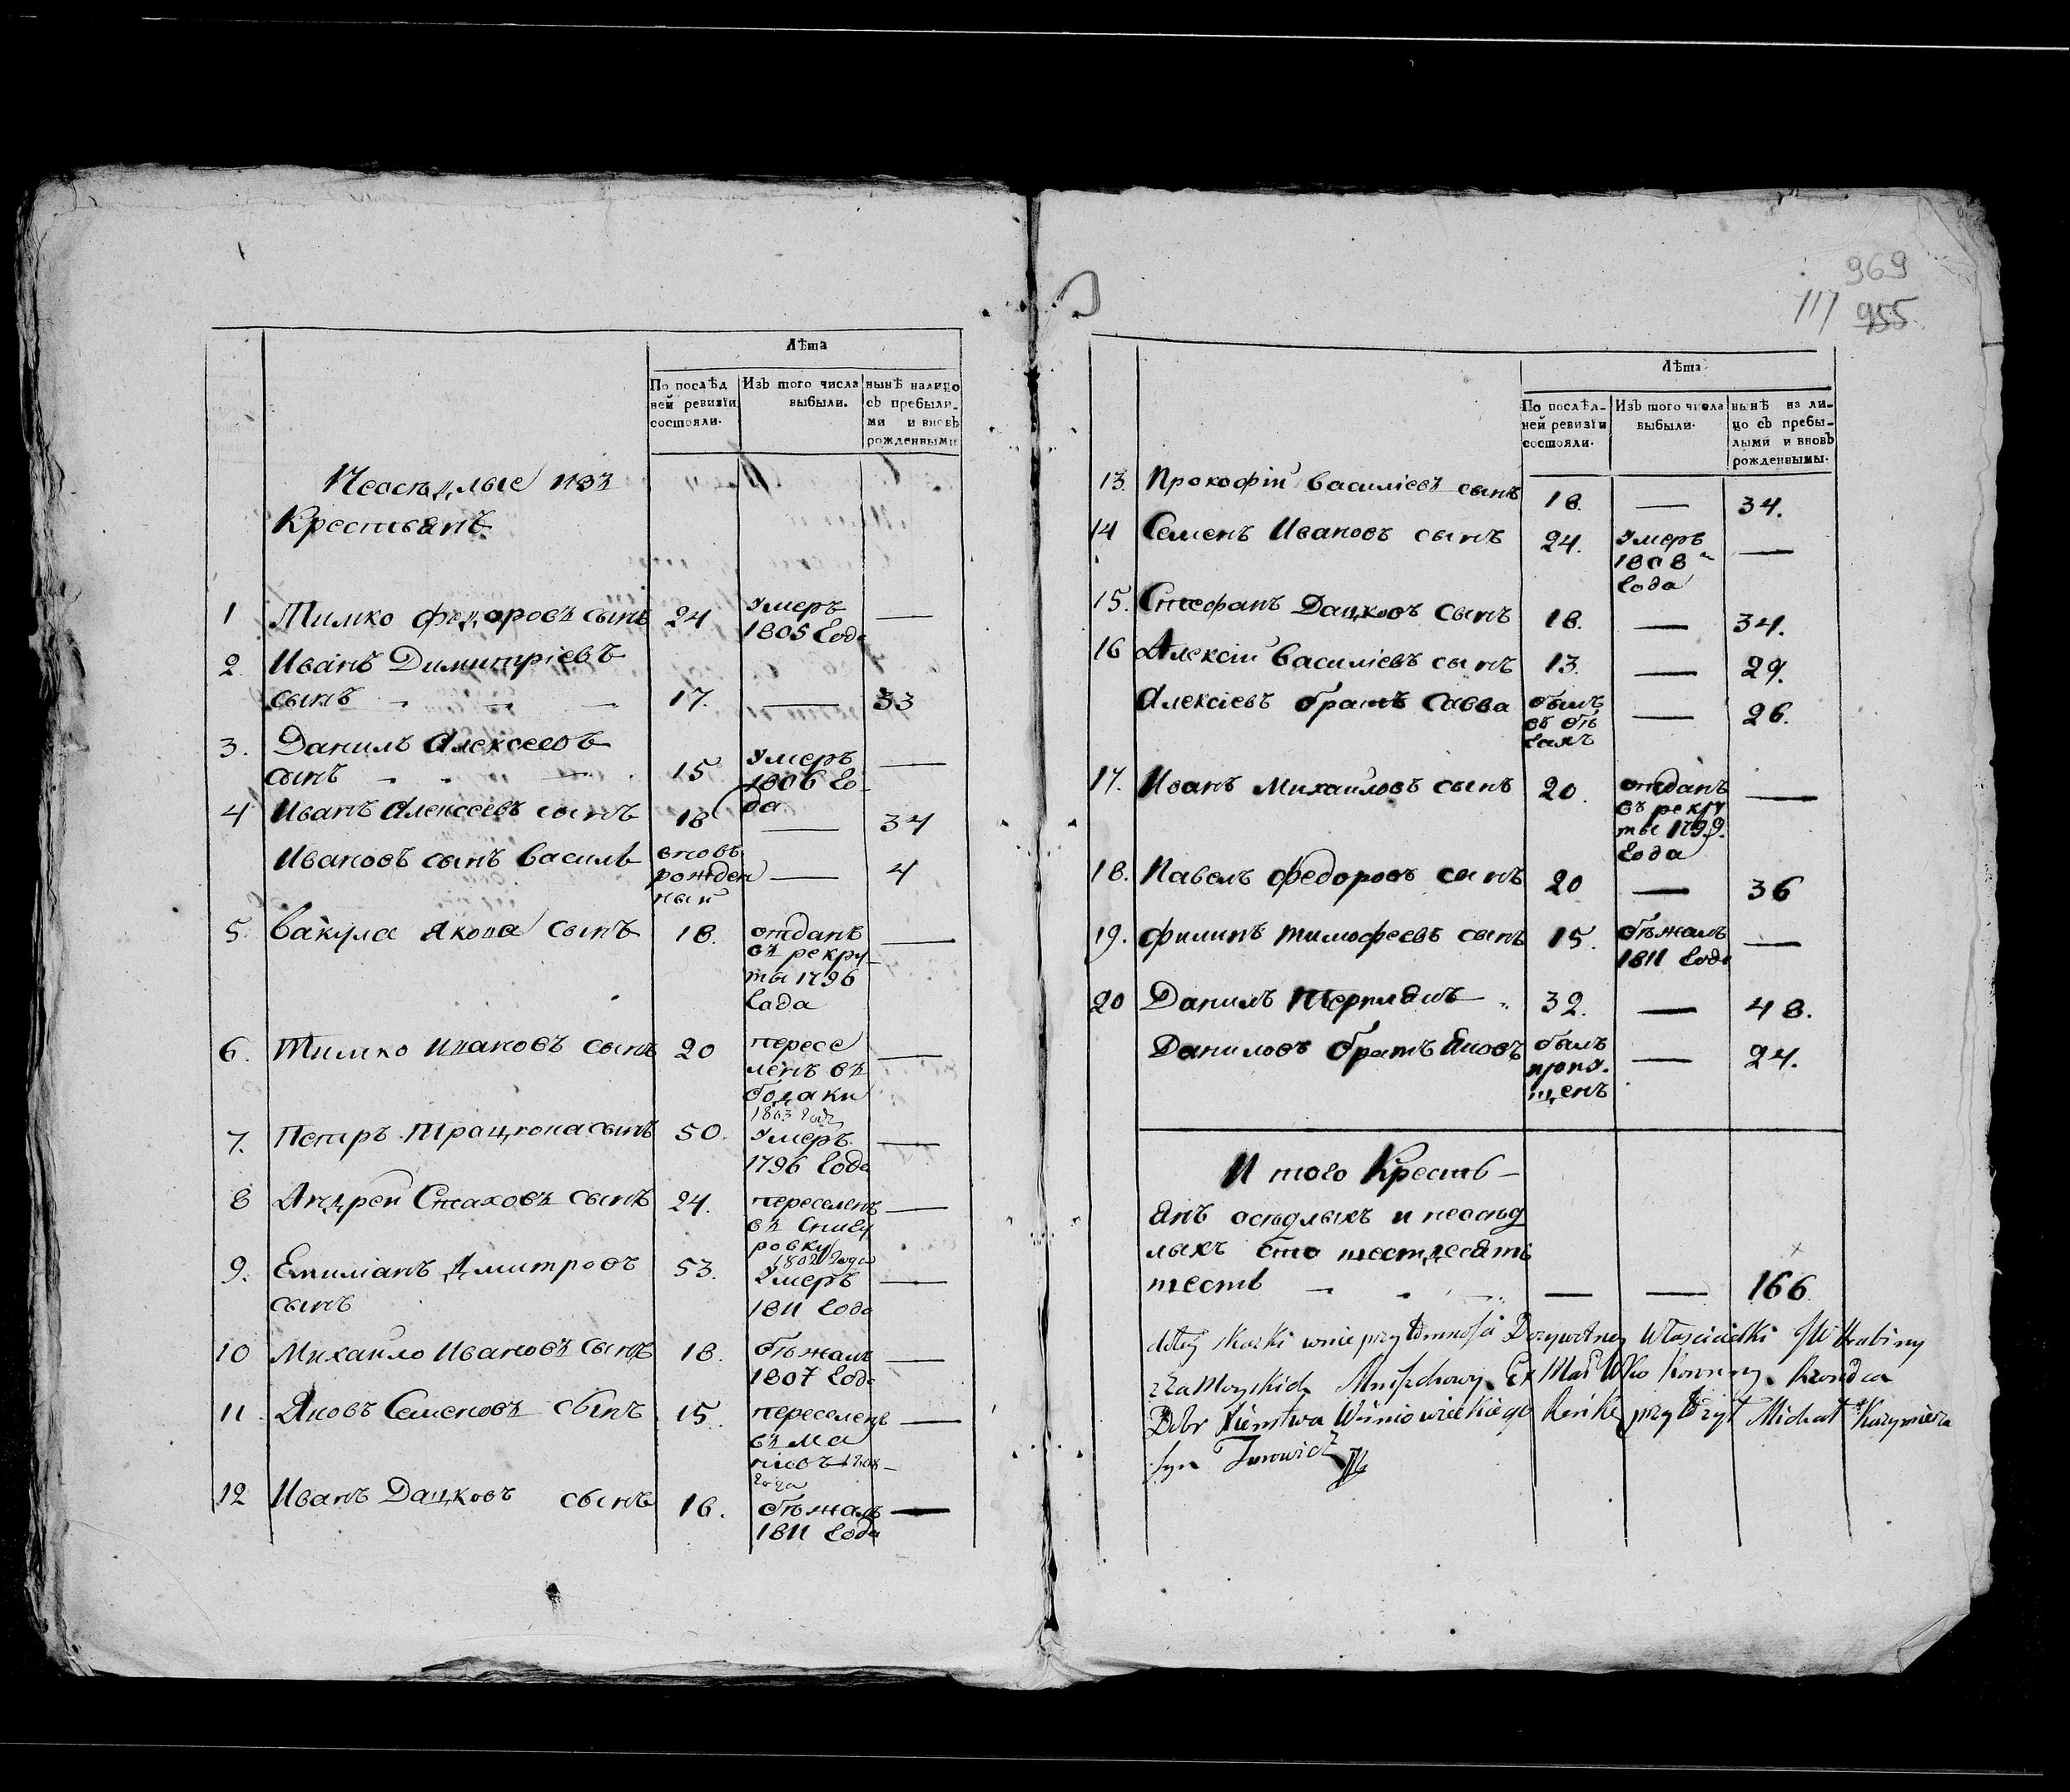 969
117 955
Лѣта
По послѣд
ней ревизіи
состояли.
Изъ того числа
выбыли.
нынѣ налицо
съ пребыли-
ми и вновь
рожденными
Неосѣдлые изъ
Крестьянъ
1 Тимко Федоровъ сынъ 24 умеръ —
1805 года
2. Иванъ Димитріевъ
сынъ 17. — 33
3. Данилъ Алексеевъ
сынъ 15 умеръ —
1806 го
да
4 Иванъ Алексеевъ сынъ 18 — 34
Ивановъ сынъ Василь вновь
рожден — 4
ный
5. Вакула Якова сынъ 18. отданъ —
въ рекру
ты 1796
года
6. Тимко Ивановъ сынъ 20 пересе —
ленъ въ
бодаки
1803 года
7. Петръ Трацкона сынъ 50. умеръ —
1796 года
8 Андрей Стаховъ сынъ 24. переселенъ —
въ Снигу
ровку
1802 года
9. Емиліанъ Дмитровъ 53. умеръ —
сынъ 1811 года
10 Михайло Ивановъ сынъ 18. бѣжалъ —
1807 года
11. Яковъ Семеновъ сынъ 15. переселенъ —
въ Ма
1808
года
12 Иванъ Дацковъ сынъ 16. бѣжалъ —
1811 года
Лѣта
По послѣд-
ней ревизіи
состояли.
Изъ того числа
выбыли.
нынѣ на ли-
цо съ пребы-
лыми и вновь
рожденными.
13. Прокофій Василіевъ сынъ 18. — 34.
14 Семенъ Ивановъ сынъ 24. умеръ —
1808
года
15. Стефанъ Дацковъ сынъ 18. — 34.
16 Алексій Василіевъ сынъ 13. — 29.
Алексіевъ братъ Савва былъ — 26.
въ бѣ
гахъ
17. Иванъ Михайловъ сынъ 20. отданъ —
въ рекру
ты 1799.
года
18. Павелъ Федоровъ сынъ 20 — 36
19. Филипъ Тимофеевъ сынъ 15. бѣжалъ —
1811 года
20 Данилъ 32. — 48.
Даниловъ братъ Яковъ былъ — 24.
пропу.
щенъ
И того Кресть-
янъ осѣдлыхъ и неосѣд
лыхъ сто шестдесятъ
шесть — — 166
do tey skazki w nieprzytomności Dożywotney Właścicielki JW Hrabiny
z Zamoyskich Mniszchowy Ex Mar Wko Koronny. Rządca
Dóbr Xięstwa Wiśniowieckiego Rękę przyłożył Michał Kazymierza
syn Jurowicz